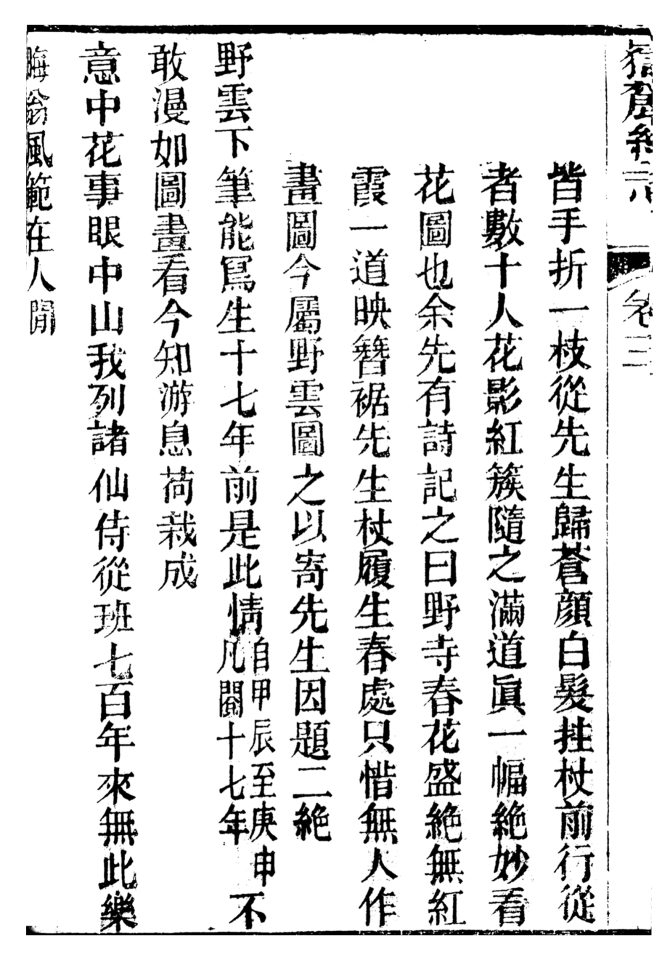 卷三
皆手折一枝從先生歸蒼顏白髮拄杖前行從
者數十人花影紅簇隨之滿道眞一幅絕妙看
花圖也余先有詩記之曰野寺春花盛絕無紅
霞一道映簪裾先生杖履生春處只惜無人作
畫圖今屬野雲圖之以寄先生因題二絕
野雲下筆能寫生十七年前是此情自甲辰至庚申凡閱十七年不
敢漫如圖畫看今知游息荷栽成
意中花事眼中山我列諸仙侍從班七百年來無此樂
晦翁風範在人閒